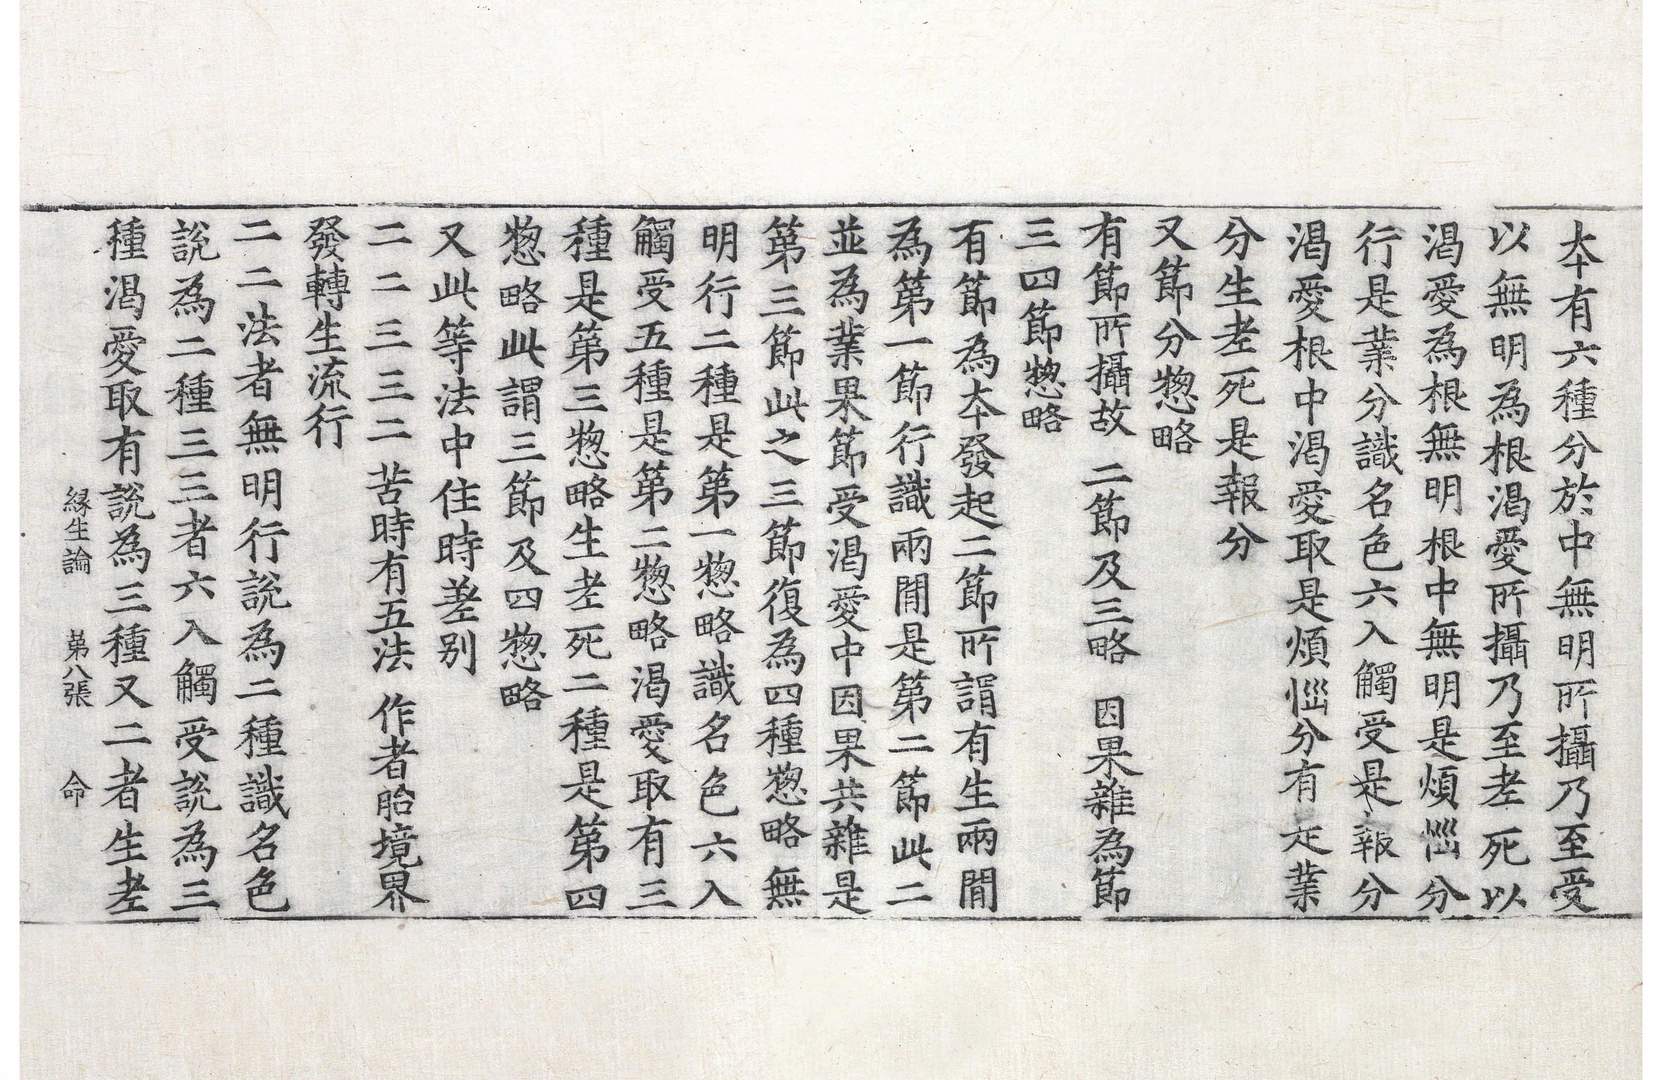 夲有六種分於中無明所攝乃至受
以無明為根渴愛所攝乃至老死以
渴愛為根無明根中無明是煩惱分
行是業分識名色六入觸受是報分
渴愛根中渴愛取是煩惱分有是業
分生老死是報分
又節分惣略
有節所攝故 二節及三略 因果雜為節
三四節惣略
有節為夲發起二節所謂有生兩間
為第一節行識兩間是第二節此二
並為業果節受渴愛中因果共雜是
第三節此之三節復為四種惣略無
明行二種是第一惣略識名色六入
觸受五種是第二惣略渴愛取有三
種是第三惣略生老死二種是第四
惣略此謂三節及四惣略
又此等法中住時差別
二二三三二 苦時有五法 作者胎境界
發轉生流行
二二法者無明行說為二種識名色
說為二種三三者六入觸受說為三
種渴愛取有說為三種又二者生老
緣生論 第八張 命